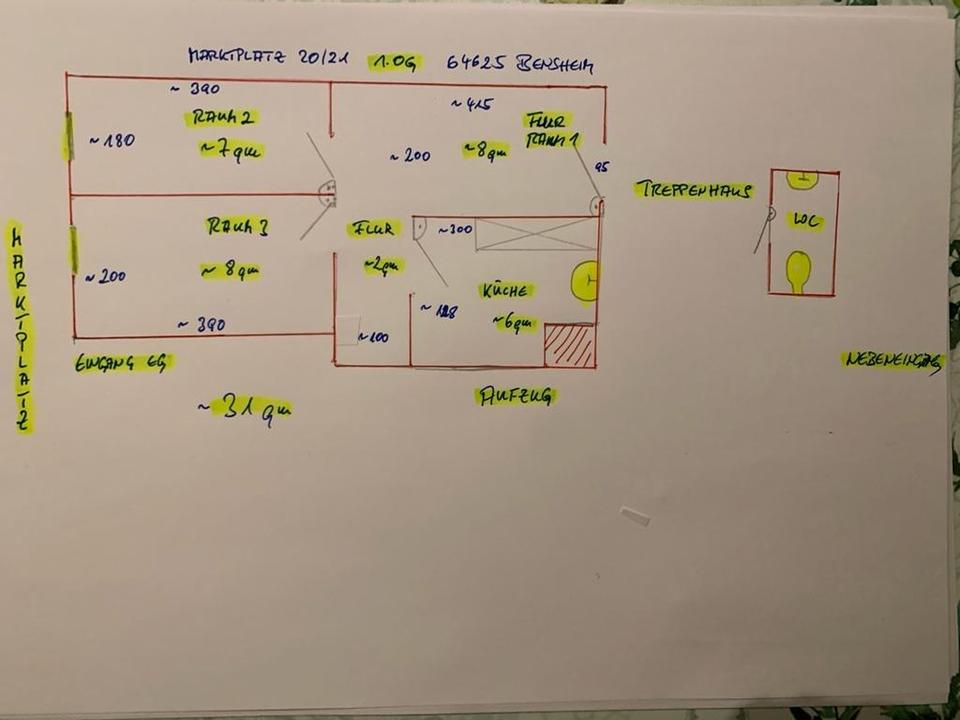 MARKTPLATZ 20/21 1.OG 64625 BENSHEIM
~ 390
~ 415
RAUM 2
FLUR
RAUM 1
~ 180
~ 7 qm
~ 200
~ 8 qm
95
TREPPENHAUS
WC
RAUM 3
FLUR
~ 300
MARKTPLATZ
~ 200
~ 8 qm
~ 2 qm
KÜCHE
~ 390
~ 6 qm
~ 100
EINGANG EG
NEBENEINGANG
~ 31 qm
AUFZUG